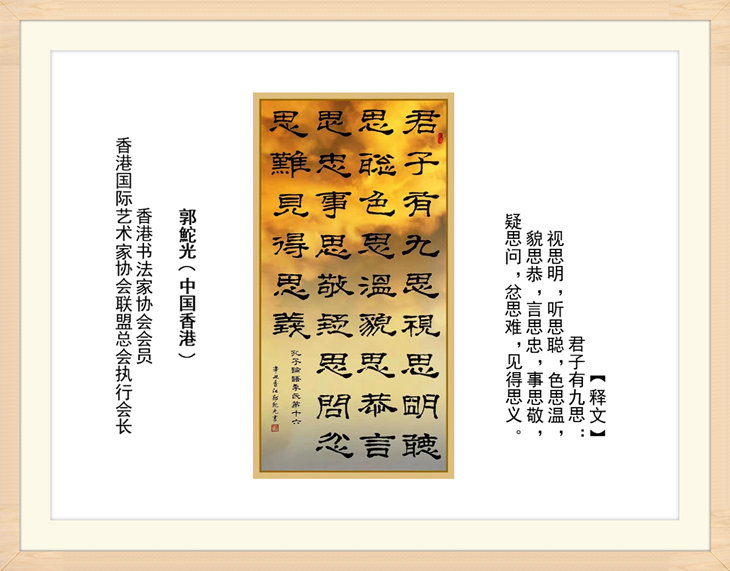 【释文】
君子有九思：
视思明，听思聪，色思温，
貌思恭，言思忠，事思敬，
疑思问，忿思难，见得思义。
君子有九思視思明聽
思聰色思溫貌思恭言
思忠事思敬疑思問忿
思難見得思義
孔子論語季氏第十六
辛丑香江郭鮀光書
郭鮀光（中国香港）
香港书法家协会会员
香港国际艺术家协会联盟总会执行会长